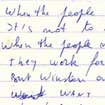 When the people
It's not to
When the people o
They work for
But Winston
WANT